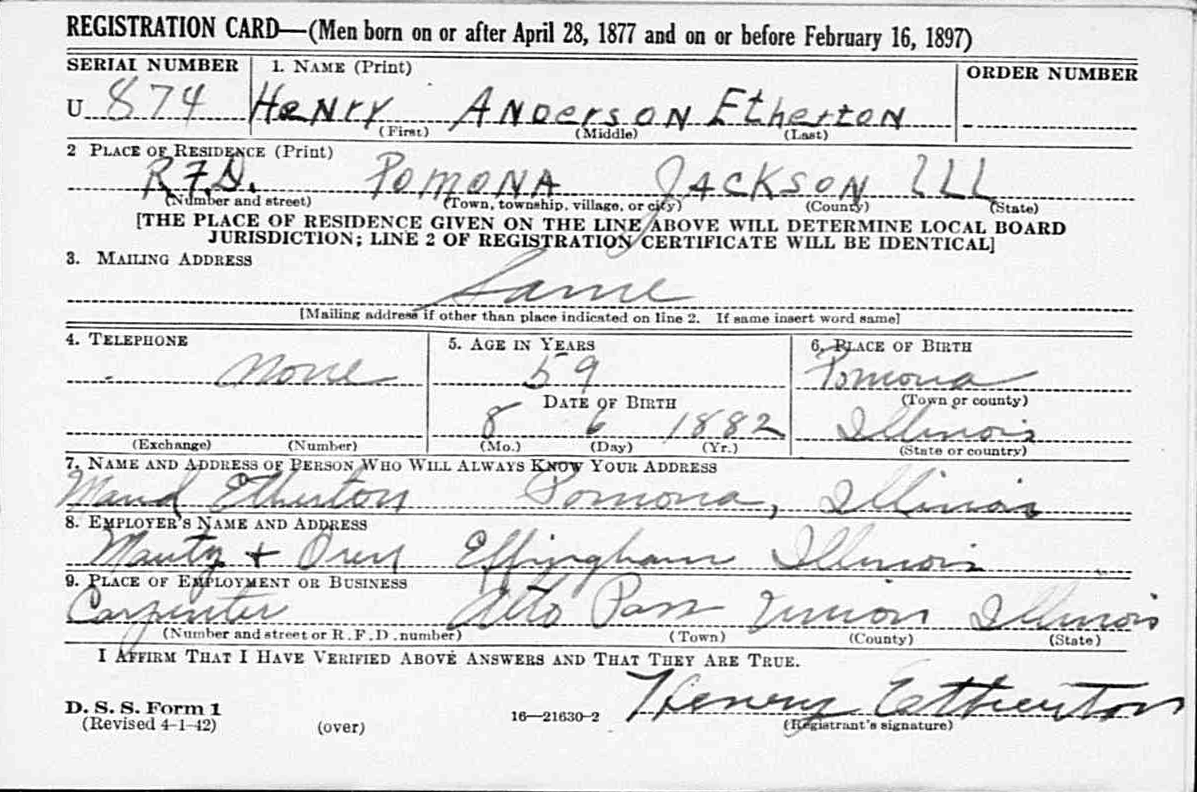 REGISTRATION CARD—(Men born on or after April 28, 1877 and on or before February 16, 1897)
SERIAL NUMBER 1. NAME (Print) ORDER NUMBER
U 874 HENRY ANDERSON Etherton
(First) (Middle) (Last)
2 PLACE OF RESIDENCE (Print)
R.F.D. POMONA JACKSON ILL
(Number and street) (Town, township, village, or city) (County) (State)
[THE PLACE OF RESIDENCE GIVEN ON THE LINE ABOVE WILL DETERMINE LOCAL BOARD
JURISDICTION; LINE 2 OF REGISTRATION CERTIFICATE WILL BE IDENTICAL]
3. MAILING ADDRESS
Same
[Mailing address if other than place indicated on line 2. If same insert word same]
4. TELEPHONE 5. AGE IN YEARS 6. PLACE OF BIRTH
None 59 Pomona
DATE OF BIRTH (Town or county)
8 6 1882 Illinois
(Exchange) (Number) (Mo.) (Day) (Yr.) (State or country)
7. NAME AND ADDRESS OF PERSON WHO WILL ALWAYS KNOW YOUR ADDRESS
Maud Etherton Pomona, Illinois
8. EMPLOYER'S NAME AND ADDRESS
+ Effingham Illinois
9. PLACE OF EMPLOYMENT OR BUSINESS
Carpenter Alto Pass Union Illinois
(Number and street or R. F. D. number) (Town) (County) (State)
I AFFIRM THAT I HAVE VERIFIED ABOVE ANSWERS AND THAT THEY ARE TRUE.
Henry Etherton
D. S. S. Form 1
(Revised 4-1-42) (over) 16—21630-2 (Registrant's signature)